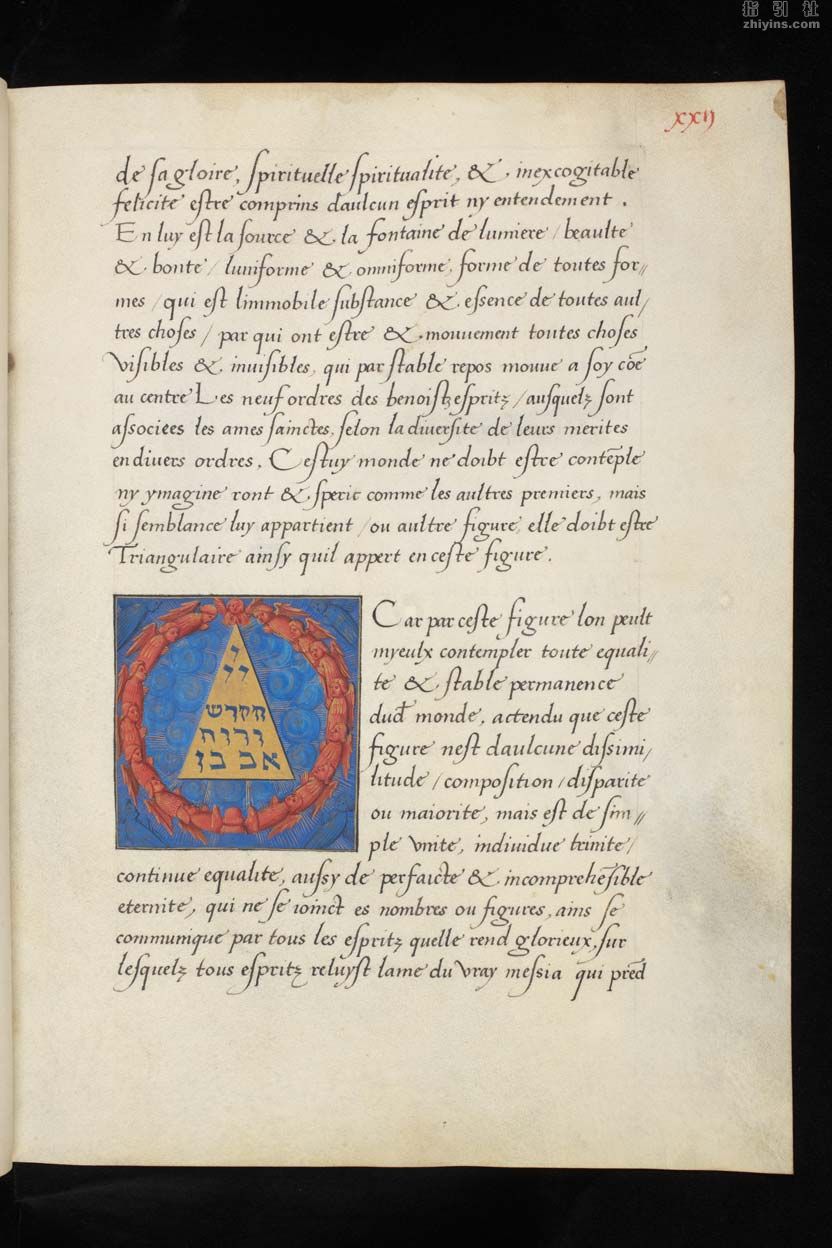 指引社
zhiyins.com
xxij
de sa gloire, spirituelle spiritualite, & inexcogitable
felicite estre comprins daulcun esprit ny entendement .
En luy est la source & la fontaine de lumiere / beaulte
& bonte / luniforme & omniforme, forme de toutes for//
mes / qui est limmobile substance & essence de toutes aul/
tres choses / par qui ont estre & mouuement toutes choses
visibles & inuisibles, qui par stable repos mouue a soy cõe
au centre Les neuf ordres des benoistz espritz / ausquelz sont
associees les ames sainctes, selon la diuersite de leurs merites
en diuers ordres. Cestuy monde ne doibt estre contẽple
ny ymagine ront & speric comme les aultres premiers, mais
si semblance luy appartient / ou aultre figure, elle doibt estre
Triangulaire ainsy quil appert en ceste figure.
Car par ceste figure lon peult
myeulx contempler toute equali//
te & stable permanence
dud monde, actendu que ceste
figure nest daulcune dissimi/
litude / composition / disparite
ou maiorite, mais est de sim//
ple vnite, indiuidue trinite/
continue equalite, aussy de perfaicte & incomprehẽsible
eternite, qui ne se ioinct es nombres ou figures, ains se
communique par tous les espritz quelle rend glorieux, sur
lesquelz tous espritz reluyst lame du vray messia qui prẽd
י
יי
הקדש
ורוח
אב בן